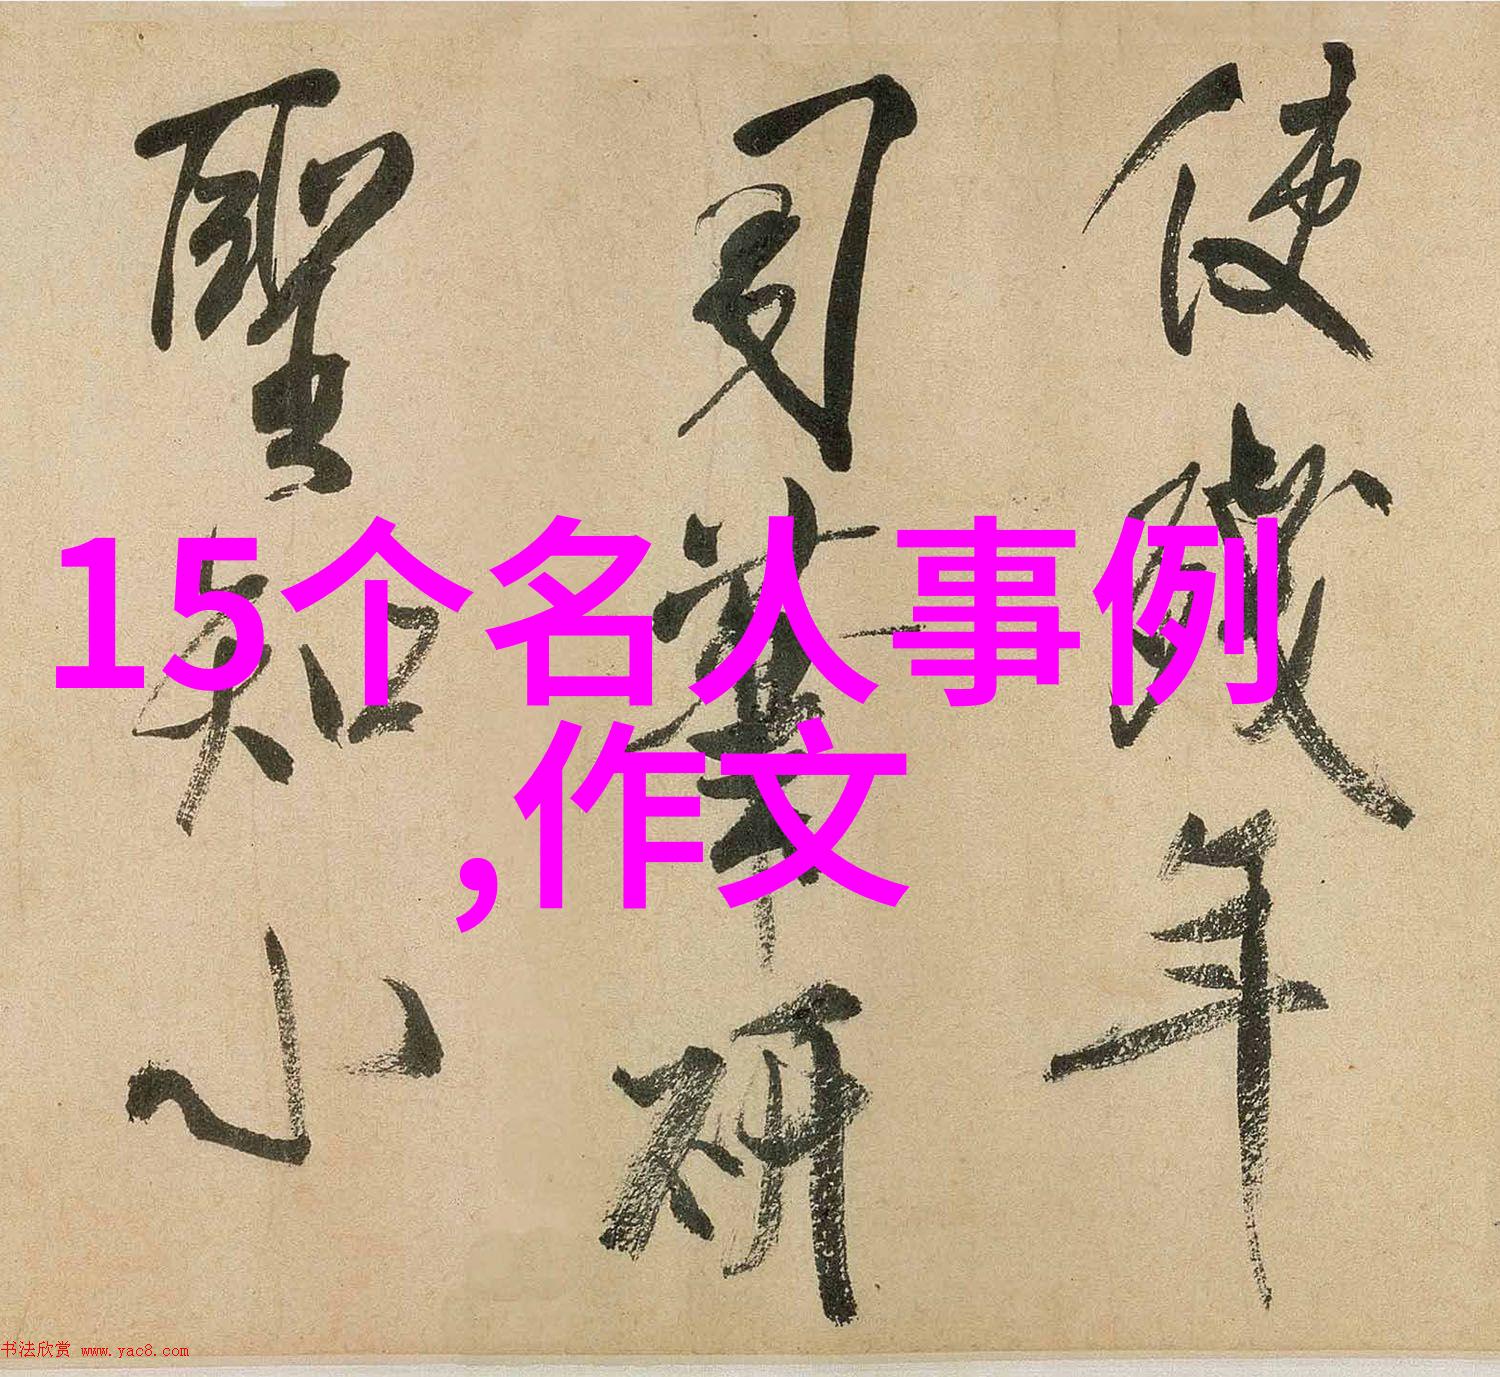 使殘年
司筆研
聖知小
15个名人事例
,作文
书法欣赏 www.yac8.com